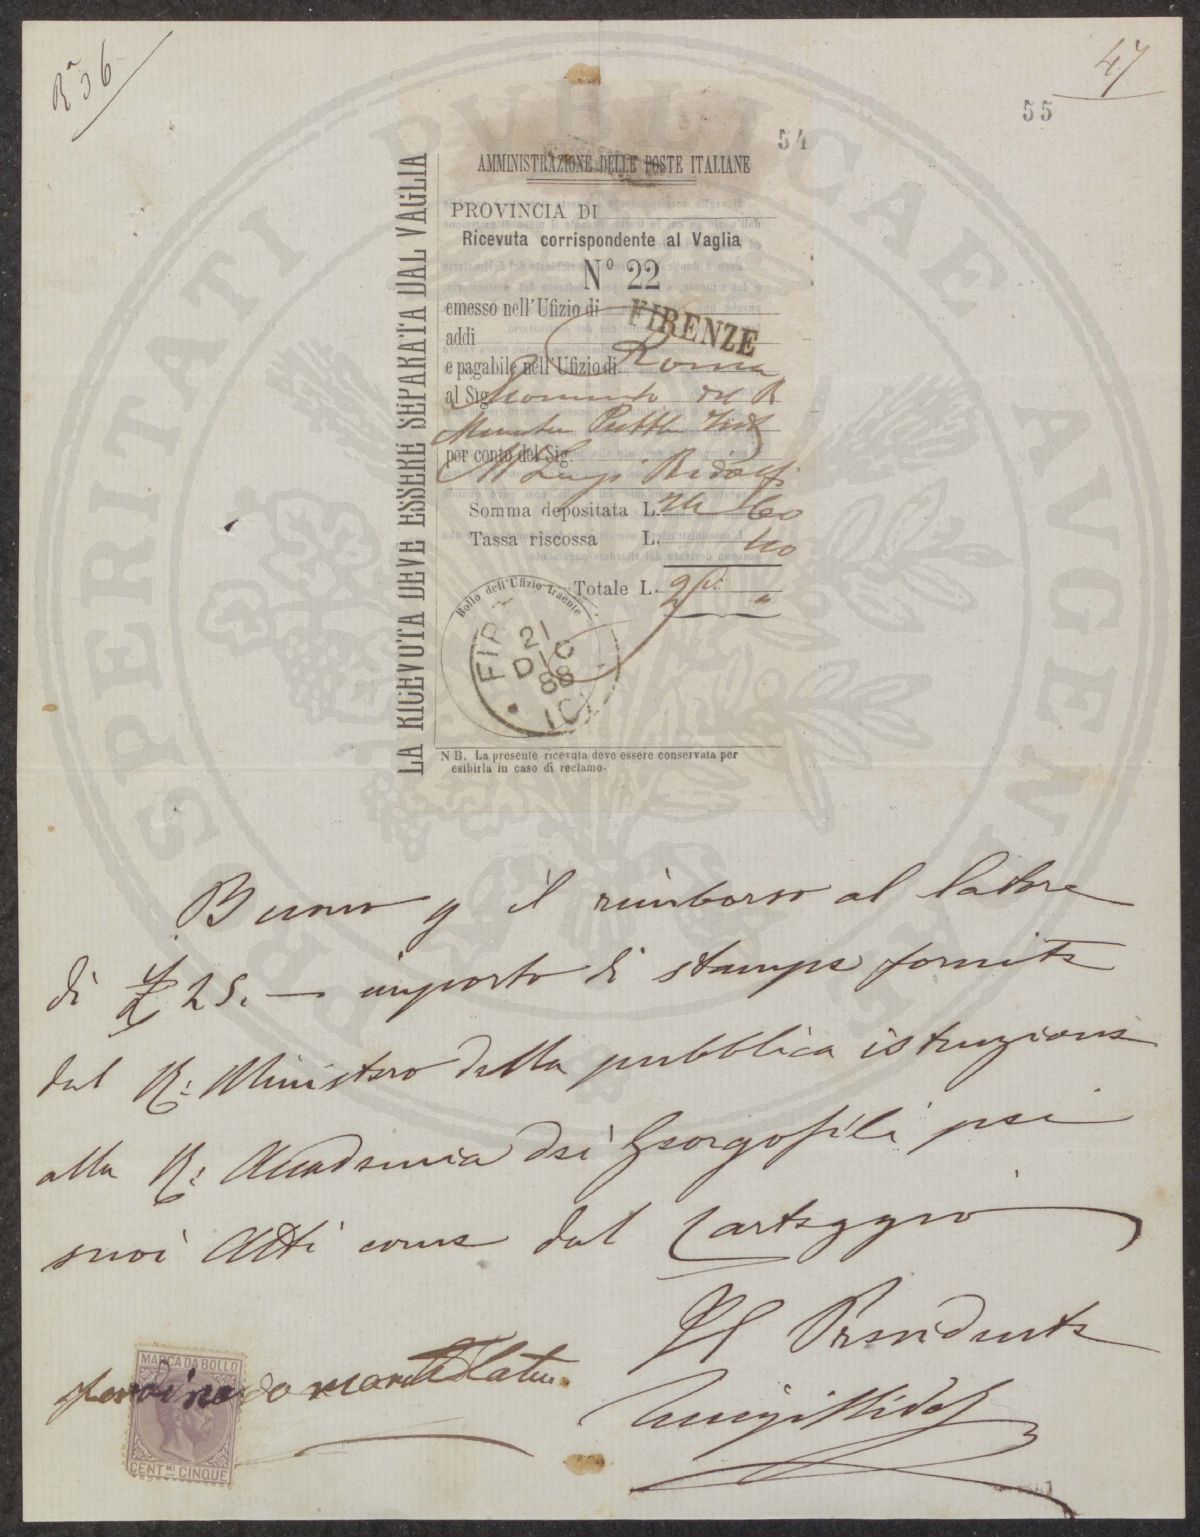 47
55
54
AMMINISTRAZIONE DELLE POSTE ITALIANE
LA RICEVUTA DEVE ESSERE SEPARATA DAL VAGLIA
PROVINCIA DI
Ricevuta corrispondente al Vaglia
Nº 22
emesso nell'Ufizio di FIRENZE
addi
e pagabile nell'Ufizio di Roma
al Sig. Economato del R.
per conto del Sig.
M. Luigi Ridolfi
Somma depositata L. 24 60
Tassa riscossa L. 40
Totale L. 25 "
Bollo dell'Ufizio traente
21
DIC
88
NB. La presente ricevuta deve essere conservata per
esibirla in caso di reclamo.
PROSPERITATI PVBLICAE AVGENDAE
Buono p il rimborso al latore
di £ 25. — importo di stampe fornite
dal R: Ministero della pubblica istruzione
alla R: Accademia dei Georgofili pei
suoi Atti come dal carteggio
Il Presidente
Luigi Ridolfi
MARCA DA BOLLO
CENT.MI CINQUE